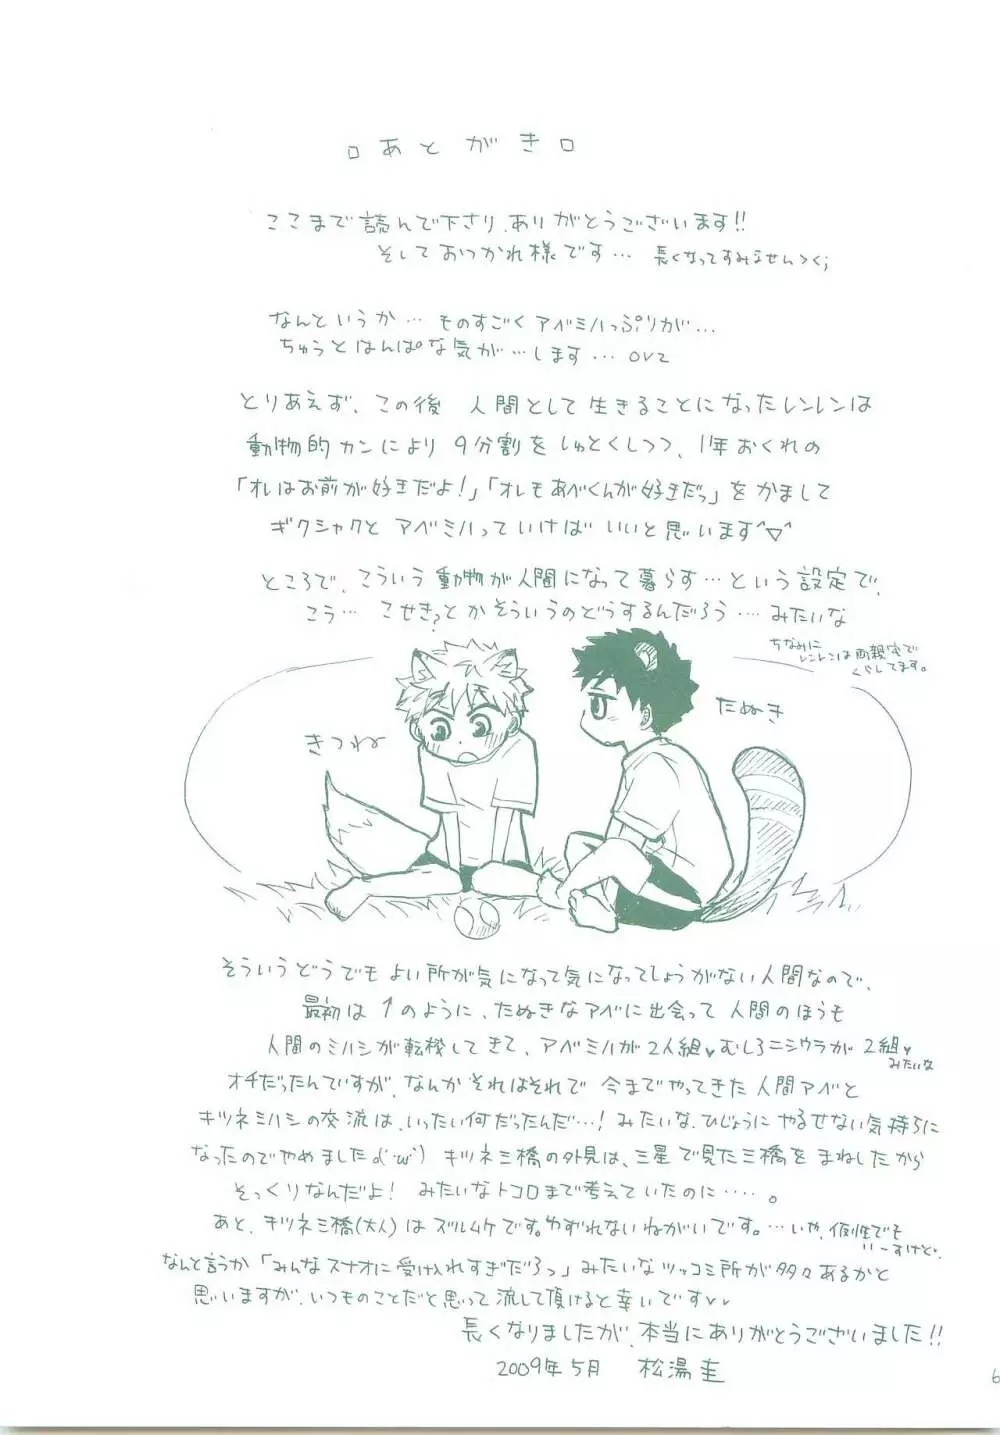 □あとがき□
ここまで読んで下さり、ありがとうございます!!
そしておつかれ様です… 長くなってすみません><;
なんというか… ものすごくアベミハっぷりが…
ちゅうとはんぱな気が…します… orz
とりあえず、この後 人間として生きることになったレンレンは
動物的カンにより 9分割をしゅとくしつつ、1年おくれの
「オレはお前が好きだよ!」「オレもあべくんが好きだっ」をかまして
ギクシャクと アベミハっていけば いいと思います^▽^
ところで、こういう動物が人間になって暮らす…という設定で、
こう… こせき?とかそういうのどうするんだろう… みたいな
ちなみに
レンレンは両親宅で
くらしてます。
きつね
たぬき
そういうどうでもよい所が気になって気になってしょうがない人間なので、
最初は↑のように、たぬきなアベに出会って 人間のほうも
人間のミハシが転機してきて、アベミハが2人組♥むしろニシウラが2組♥
みたいな
オチだったんですが、なんかそれはそれで 今までやってきた人間アベと
キツネミハシの交流は、いったい何だったんだ…!みたいな、ひじょうにやるせない気持ちに
なったのでやめましたd(´・ω・`) キツネ三橋の外見は、三星で見た三橋をまねしたから
そっくりなんだよ! みたいなトコロまで考えていたのに……。
あと、キツネ三橋(大人)はズルムケです。ゆずれないねがいです。…いや、仮性でも
いーすけど。
なんと言うか「みんなスナオに受け入れすぎだろっ」みたいなツッコミ所が多々あるかと
思いますが、いつものことだと思って流して頂けると幸いです
長くなりましたが、本当にありがとうございました!!
2009年5月 松湯圭
6